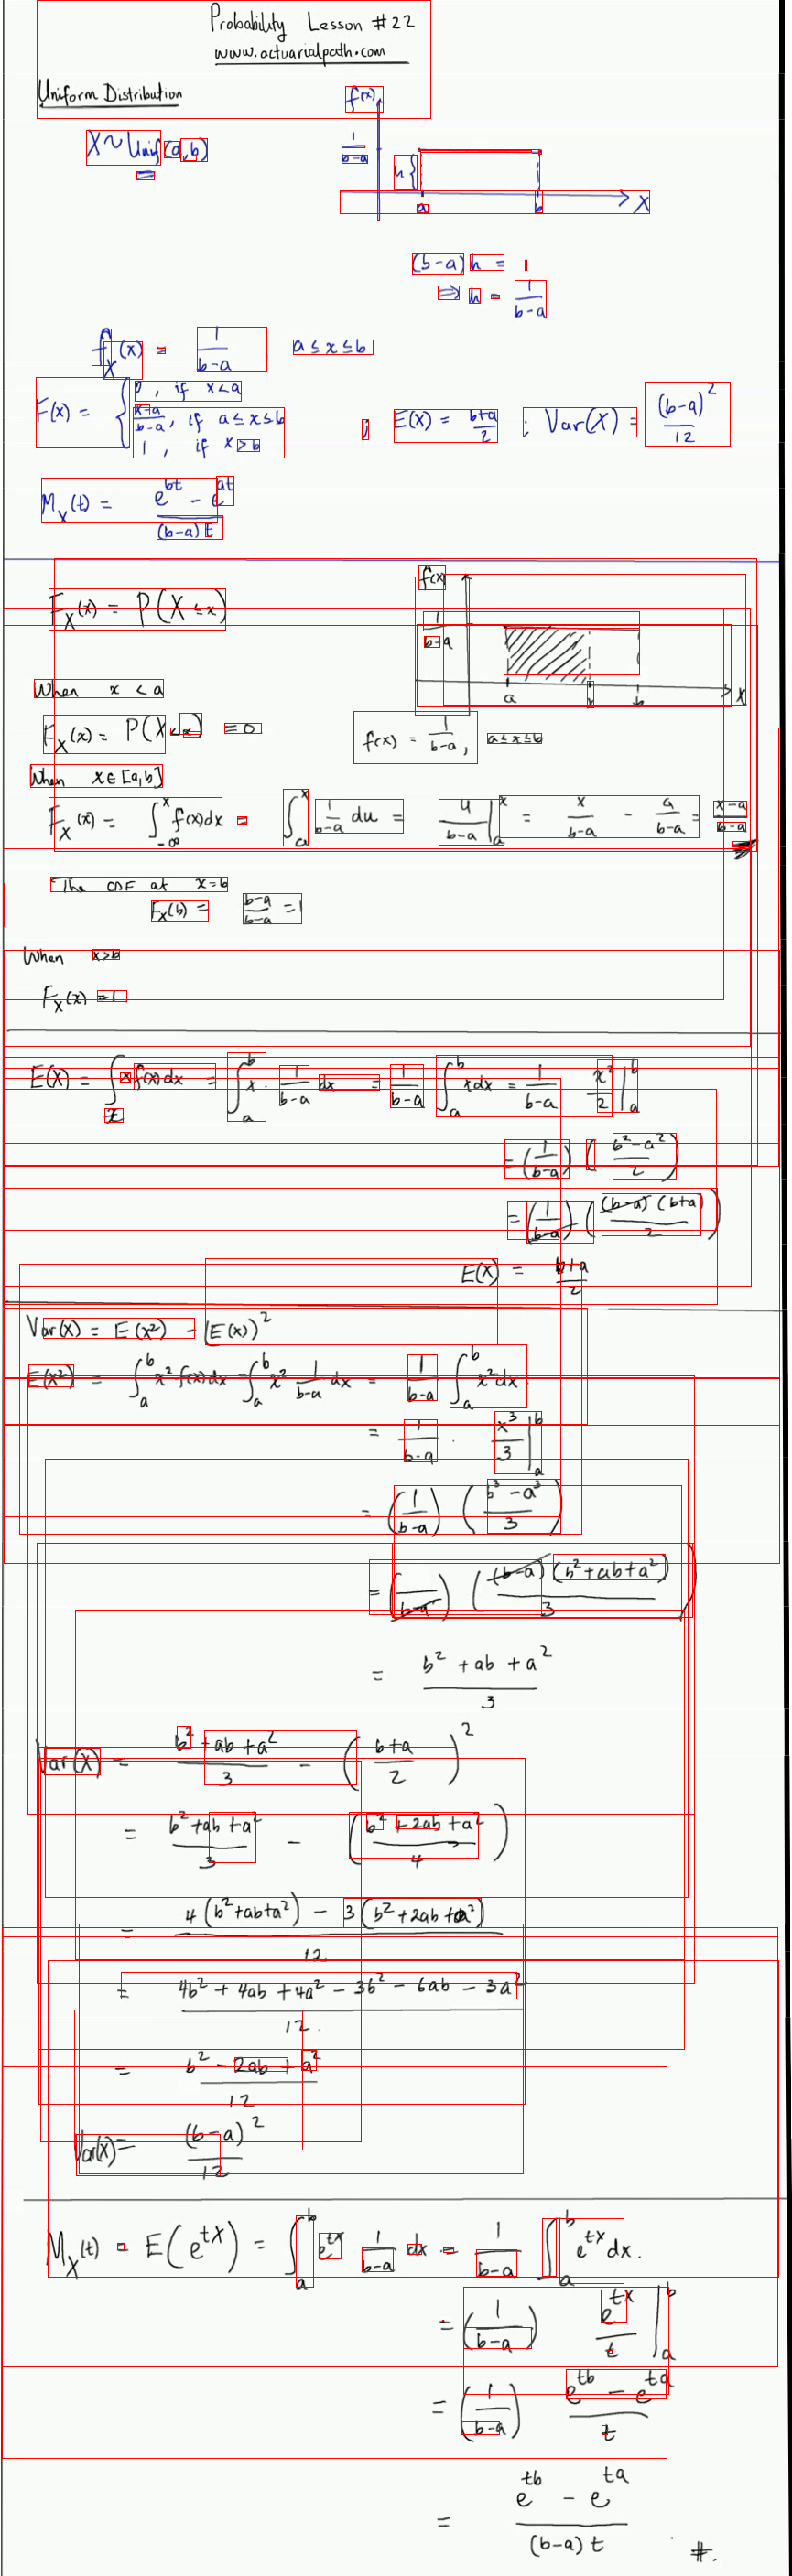 Probability Lesson #22
www.actuarialpath.com
Uniform Distribution
f(x)
X ~ Unif (a,b)
1/(b-a)
h{
a b X
(b-a) h = 1
⇒ h = 1/(b-a)
f_X(x) = 1/(b-a) a ≤ x ≤ b
F(x) = { 0, if x < a
(x-a)/(b-a), if a ≤ x ≤ b ; E(X) = (b+a)/2 ; Var(X) = (b-a)²/12
1, if x > b
M_X(t) = (e^{bt} - e^{at})/((b-a)t)
f(x)
F_X(x) = P(X ≤ x)
1/(b-a)
a x b X
When x < a
F_X(x) = P(X < x) = 0 f(x) = 1/(b-a), a ≤ x ≤ b
When x ∈ [a,b]
F_X(x) = ∫_{-∞}^{x} f(x)dx = ∫_a^x 1/(b-a) du = u/(b-a) |_a^x = x/(b-a) - a/(b-a) = (x-a)/(b-a)
The CDF at x=b
F_X(b) = (b-a)/(b-a) = 1
When x>b
F_X(x) = 1
E(X) = ∫ x f(x) dx = ∫_a^b x 1/(b-a) dx = 1/(b-a) ∫_a^b x dx = 1/(b-a) x²/2 |_a^b
= (1/(b-a)) ((b²-a²)/2)
= (1/(b-a)) ((b-a)(b+a)/2)
E(X) = (b+a)/2
Var(X) = E(X²) - [E(X)]²
E(X²) = ∫_a^b x² f(x) dx = ∫_a^b x² 1/(b-a) dx = 1/(b-a) ∫_a^b x² dx.
= 1/(b-a) · x³/3 |_a^b
= (1/(b-a)) ((b³ - a³)/3)
= (1/(b-a)) ((b-a)(b²+ab+a²)/3)
= (b² + ab + a²)/3
Var(X) = (b² + ab + a²)/3 - ((b+a)/2)²
= (b² + ab + a²)/3 - ((b² + 2ab + a²)/4)
= (4(b²+ab+a²) - 3(b²+2ab+a²))/12
= (4b² + 4ab + 4a² - 3b² - 6ab - 3a²)/12.
= (b² - 2ab + a²)/12
Var(X) = (b-a)²/12
M_X(t) = E(e^{tX}) = ∫_a^b e^{tx} 1/(b-a) dx = 1/(b-a) ∫_a^b e^{tx} dx.
= (1/(b-a)) e^{tx}/t |_a^b
= (1/(b-a)) (e^{tb} - e^{ta})/t
= (e^{tb} - e^{ta})/((b-a)t) #.